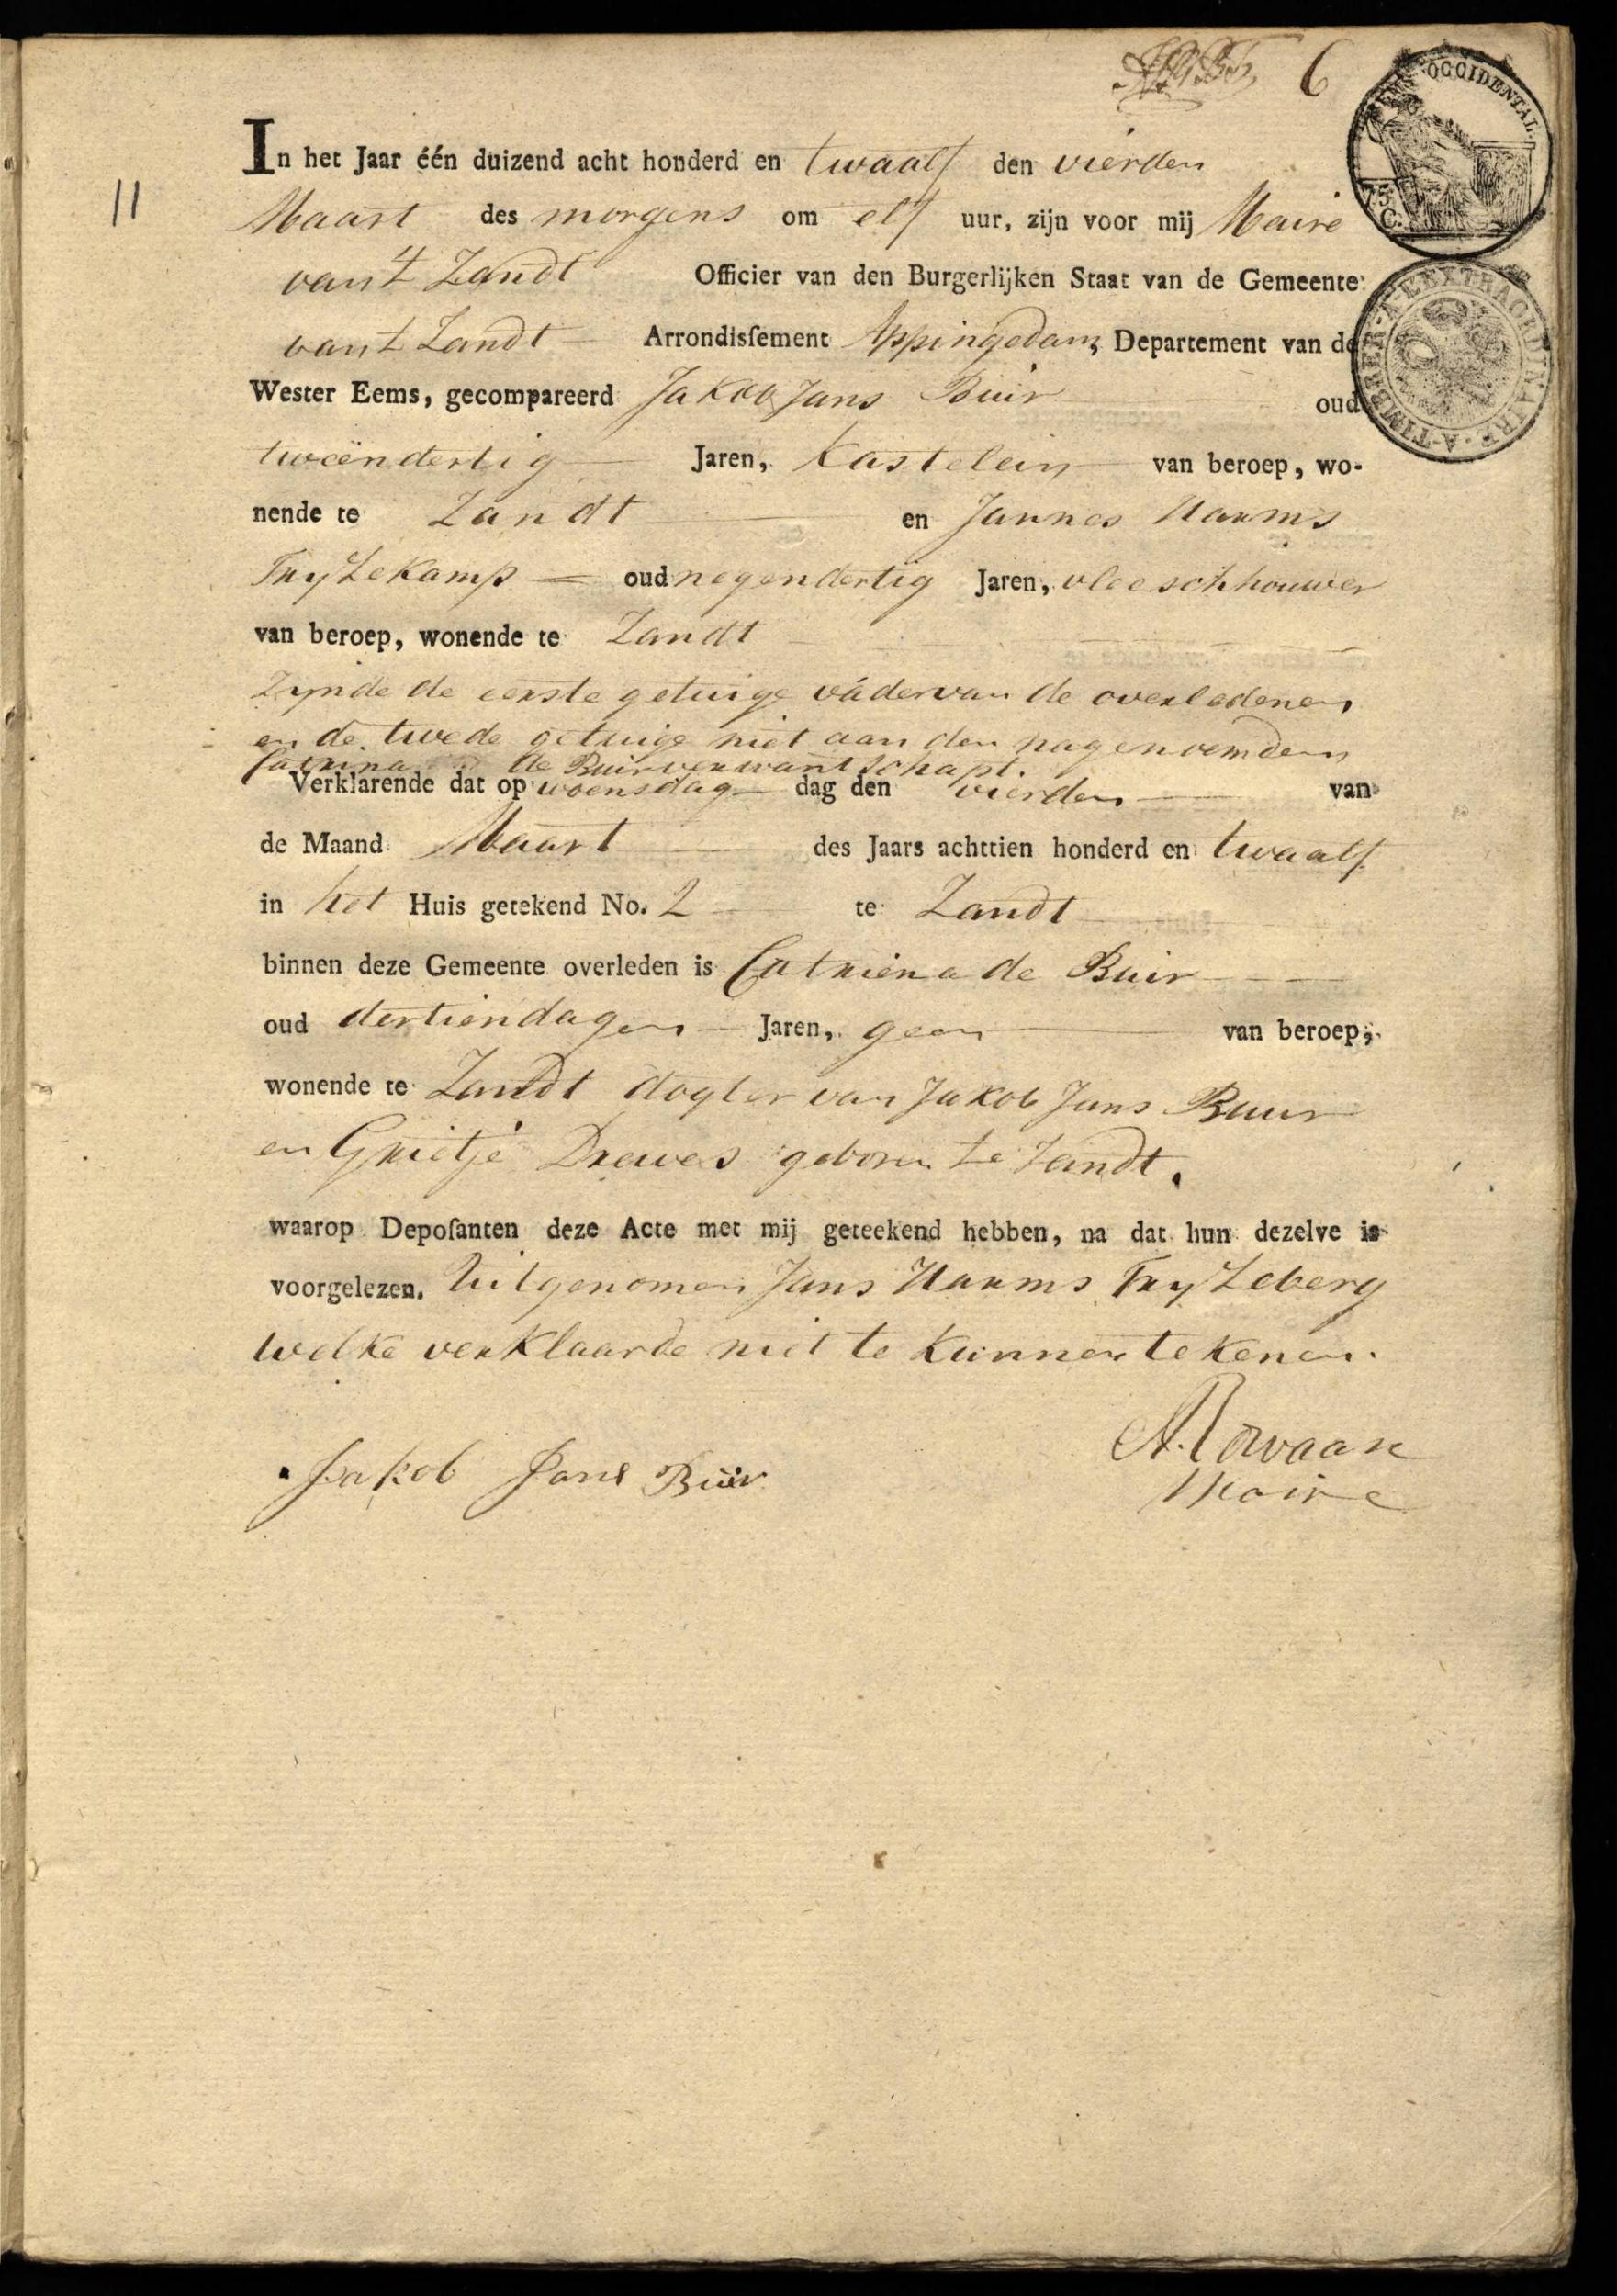 6
OCCIDENTAL
75 C.
11
In het Jaar één duizend acht honderd en twaalf den vierden
Maart des morgens om elf uur, zijn voor mij Maire
van 't Zandt Officier van den Burgerlijken Staat van de Gemeente
van t Zandt Arrondisſement Appingedam, Departement van de
TIMBRE EXTRAORDINAIRE
Wester Eems, gecompareerd Jakob Jans Buir oud
tweëndertig Jaren, Kastelein van beroep, wo-
nende te Zandt en Jannes Harms
kamp oud negendertig Jaren, vleeschhouwer
van beroep, wonende te Zandt
Zynde de eerste getuige vader van de overledenen
en de twede getuige niet aan den nagenoemden
Catrina de Buir verwantschapt.
Verklarende dat op woensdag dag den vierden van
de Maand Maart des Jaars achttien honderd en twaalf
in het Huis getekend No. 2 te Zandt
binnen deze Gemeente overleden is Catriena de Buir
oud dertiendagen Jaren, geen van beroep,
wonende te Zandt dogter van Jakob Jans Buur
en Grietje Drewes geboren te Zandt.
waarop Depoſanten deze Acte met mij geteekend hebben, na dat hun dezelve is
voorgelezen. Uitgenomen Jans Harms
welke verklaarde niet te kunnen tekenen.
Jakob Jans Buir
Maire